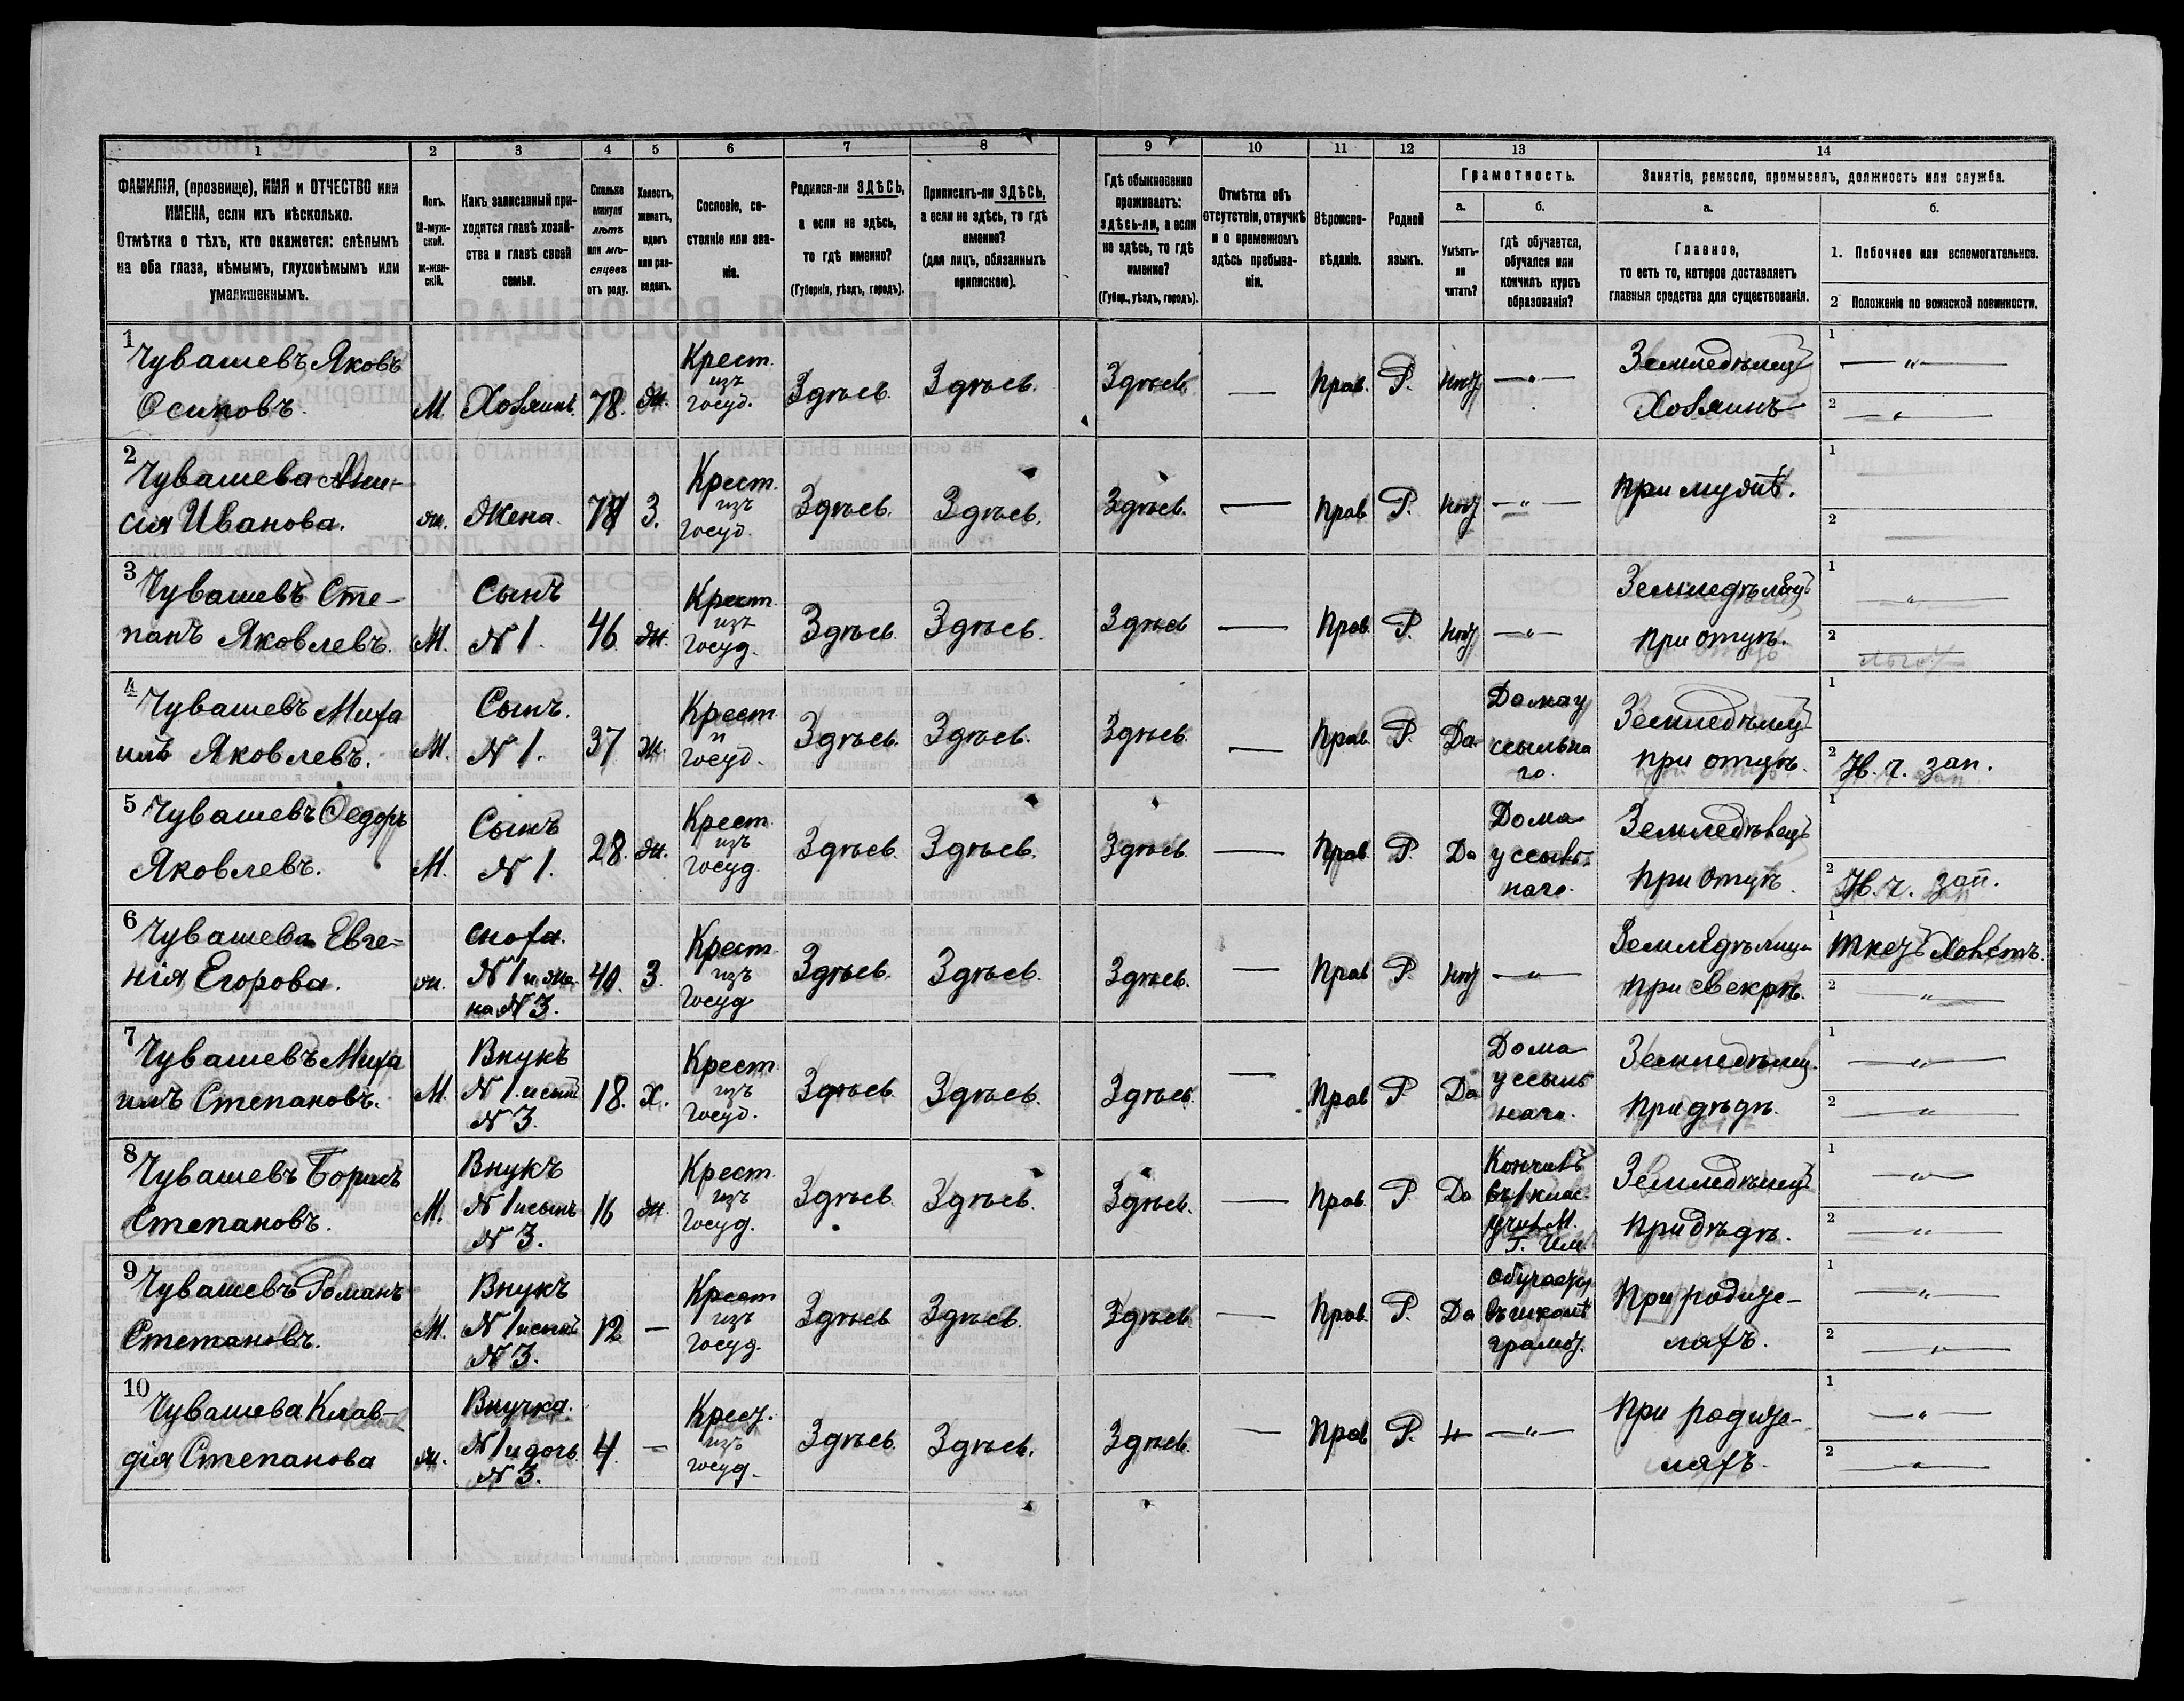 1 2 3 4 5 6 7 8 9 10 11 12 13 14
ФАМИЛІЯ, (прозвище), ИМЯ и ОТЧЕСТВО или
ИМЕНА, если ихъ нѣсколько.
Отмѣтка о тѣхъ, кто окажется: слѣпымъ
на оба глаза, нѣмымъ, глухонѣмымъ или
умалишеннымъ.
Полъ.
М-муж-
ской.
ж-жен-
скій.
Какъ записанный при-
ходится главѣ хозяй-
ства и главѣ своей
семьи.
Сколько
минуло
лѣтъ
или мѣ-
сяцевъ
отъ роду.
Холостъ,
женатъ,
вдовъ
или раз-
веденъ.
Сословіе, со-
стояніе или зва-
ніе.
Родился-ли ЗДѢСЬ,
а если не здѣсь,
то гдѣ именно?
(Губернія, уѣздъ, городъ).
Приписанъ-ли ЗДѢСЬ,
а если не здѣсь, то гдѣ
именно?
(для лицъ, обязанныхъ
припискою).
Гдѣ обыкновенно
проживаетъ:
здѣсь-ли, а если
не здѣсь, то гдѣ
именно?
(Губер., уѣздъ, городъ).
Отмѣтка объ
отсутствіи, отлучкѣ
и о временномъ
здѣсь пребыва-
ніи.
Вѣроиспо-
вѣданіе.
Родной
языкъ.
Грамотность.
а.
Умѣетъ-
ли
читать?
б.
гдѣ обучается,
обучался или
кончилъ курсъ
образованія?
Занятіе, ремесло, промыселъ, должность или служба.
а.
Главное,
то есть то, которое доставляетъ
главныя средства для существованія.
б.
1. Побочное или вспомогательное.
2 Положеніе по воинской повинности.
1
Чувашевъ Яковъ
Осиповъ.
М. Хозяинъ. 78. ж.
Крест.
изъ
госуд.
Здѣсь. Здѣсь. Здѣсь. — Прав. Р. нѣт —"—
Земледѣлец
Хозяинъ
1 —"—
2 —"—
2
Чувашева Ани-
сія Иванова.
ж. Жена. 3.
Крест.
изъ
госуд.
Здѣсь. Здѣсь. Здѣсь. — Прав. Р. нѣт —"—
При мужѣ.
1
2
3
Чувашевъ Сте-
панъ Яковлевъ.
М.
Сынъ
N 1.
46. ж.
Крест.
изъ
госуд.
Здѣсь. Здѣсь. Здѣсь — Прав. Р. нѣт —"—
Земледѣлецъ
при отцѣ.
1 —"—
2
4
Чувашевъ Миха
илъ Яковлевъ.
М.
Сынъ.
N 1.
37 ж.
Крест.
и
госуд.
Здѣсь. Здѣсь. Здѣсь. — Прав. Р. Да.
Дома у
ссыльна
го.
Земледѣлец
при отцѣ.
1
2 Н. ч. зап.
5
Чувашевъ Ѳедоръ
Яковлевъ.
М.
Сынъ
N 1.
28. ж.
Крест.
изъ
госуд.
Здѣсь. Здѣсь. Здѣсь. — Прав. Р. Да
Дома
у ссыль-
наго.
Земледѣлецъ
при отцѣ.
1
2 Н. ч. зап.
6
Чувашева Евге-
нія Егорова.
ж.
сноха.
N 1 и же-
на N 3.
3.
Крест.
изъ
госуд
Здѣсь. Здѣсь. Здѣсь. — Прав Р. нѣт —"—
Земледѣлица
при свекрѣ.
1 Ткез Холстъ.
2 —"—
7
Чувашевъ Миха
илъ Степановъ.
М.
Внукъ
N 1. и сын
N 3.
18. Х.
Крест.
изъ
госуд.
Здѣсь. Здѣсь. Здѣсь. — Прав Р Да
Дома
у ссыль
наго.
Земледѣлец.
При дѣдѣ.
1 —"—
2 —"—
8
Чувашевъ Борисъ
Степановъ.
М.
Внукъ
N 1 и сынъ
N 3.
16 ж.
Крест.
изъ
госуд.
Здѣсь. Здѣсь. Здѣсь. — Прав Р Да
Кончилъ
въ 1 клас.
учил. М.
Земледѣлецъ
При дѣдѣ.
1 —"—
2 —"—
9
Чувашевъ Романъ
Степановъ.
М.
Внукъ
N 1 и сынъ
N 3.
12 —
Крест
изъ
госуд.
Здѣсь Здѣсь. Здѣсь. — Прав. Р. Да
Обучается
въ школѣ
грамот.
При родите-
ляхъ.
1 —"—
2 —"—
10
Чувашева Клав-
дія Степанова
ж.
Внучка.
N 1 и дочь
N 3.
4. —
Крест.
изъ
госуд.
Здѣсь. Здѣсь. Здѣсь. — Прав Р. Н —"—
При родите-
ляхъ.
1 —"—
2 —"—